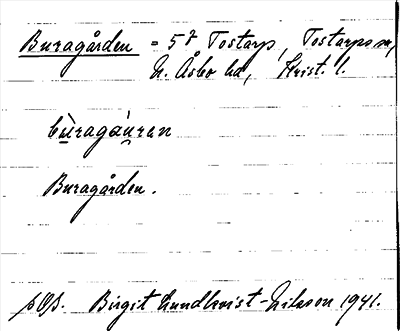 Buragården = 5⁷ Tostarp, Tostarps sn,
N. Åsbo hd, Krist. l.
bùragáu̯ran
Buragården.
pOp. Birgit Lundkvist-Nilsson 1941.